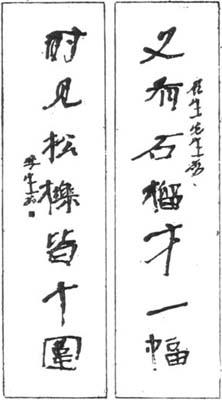 又有石榴才一幅
時見松櫟皆十圍